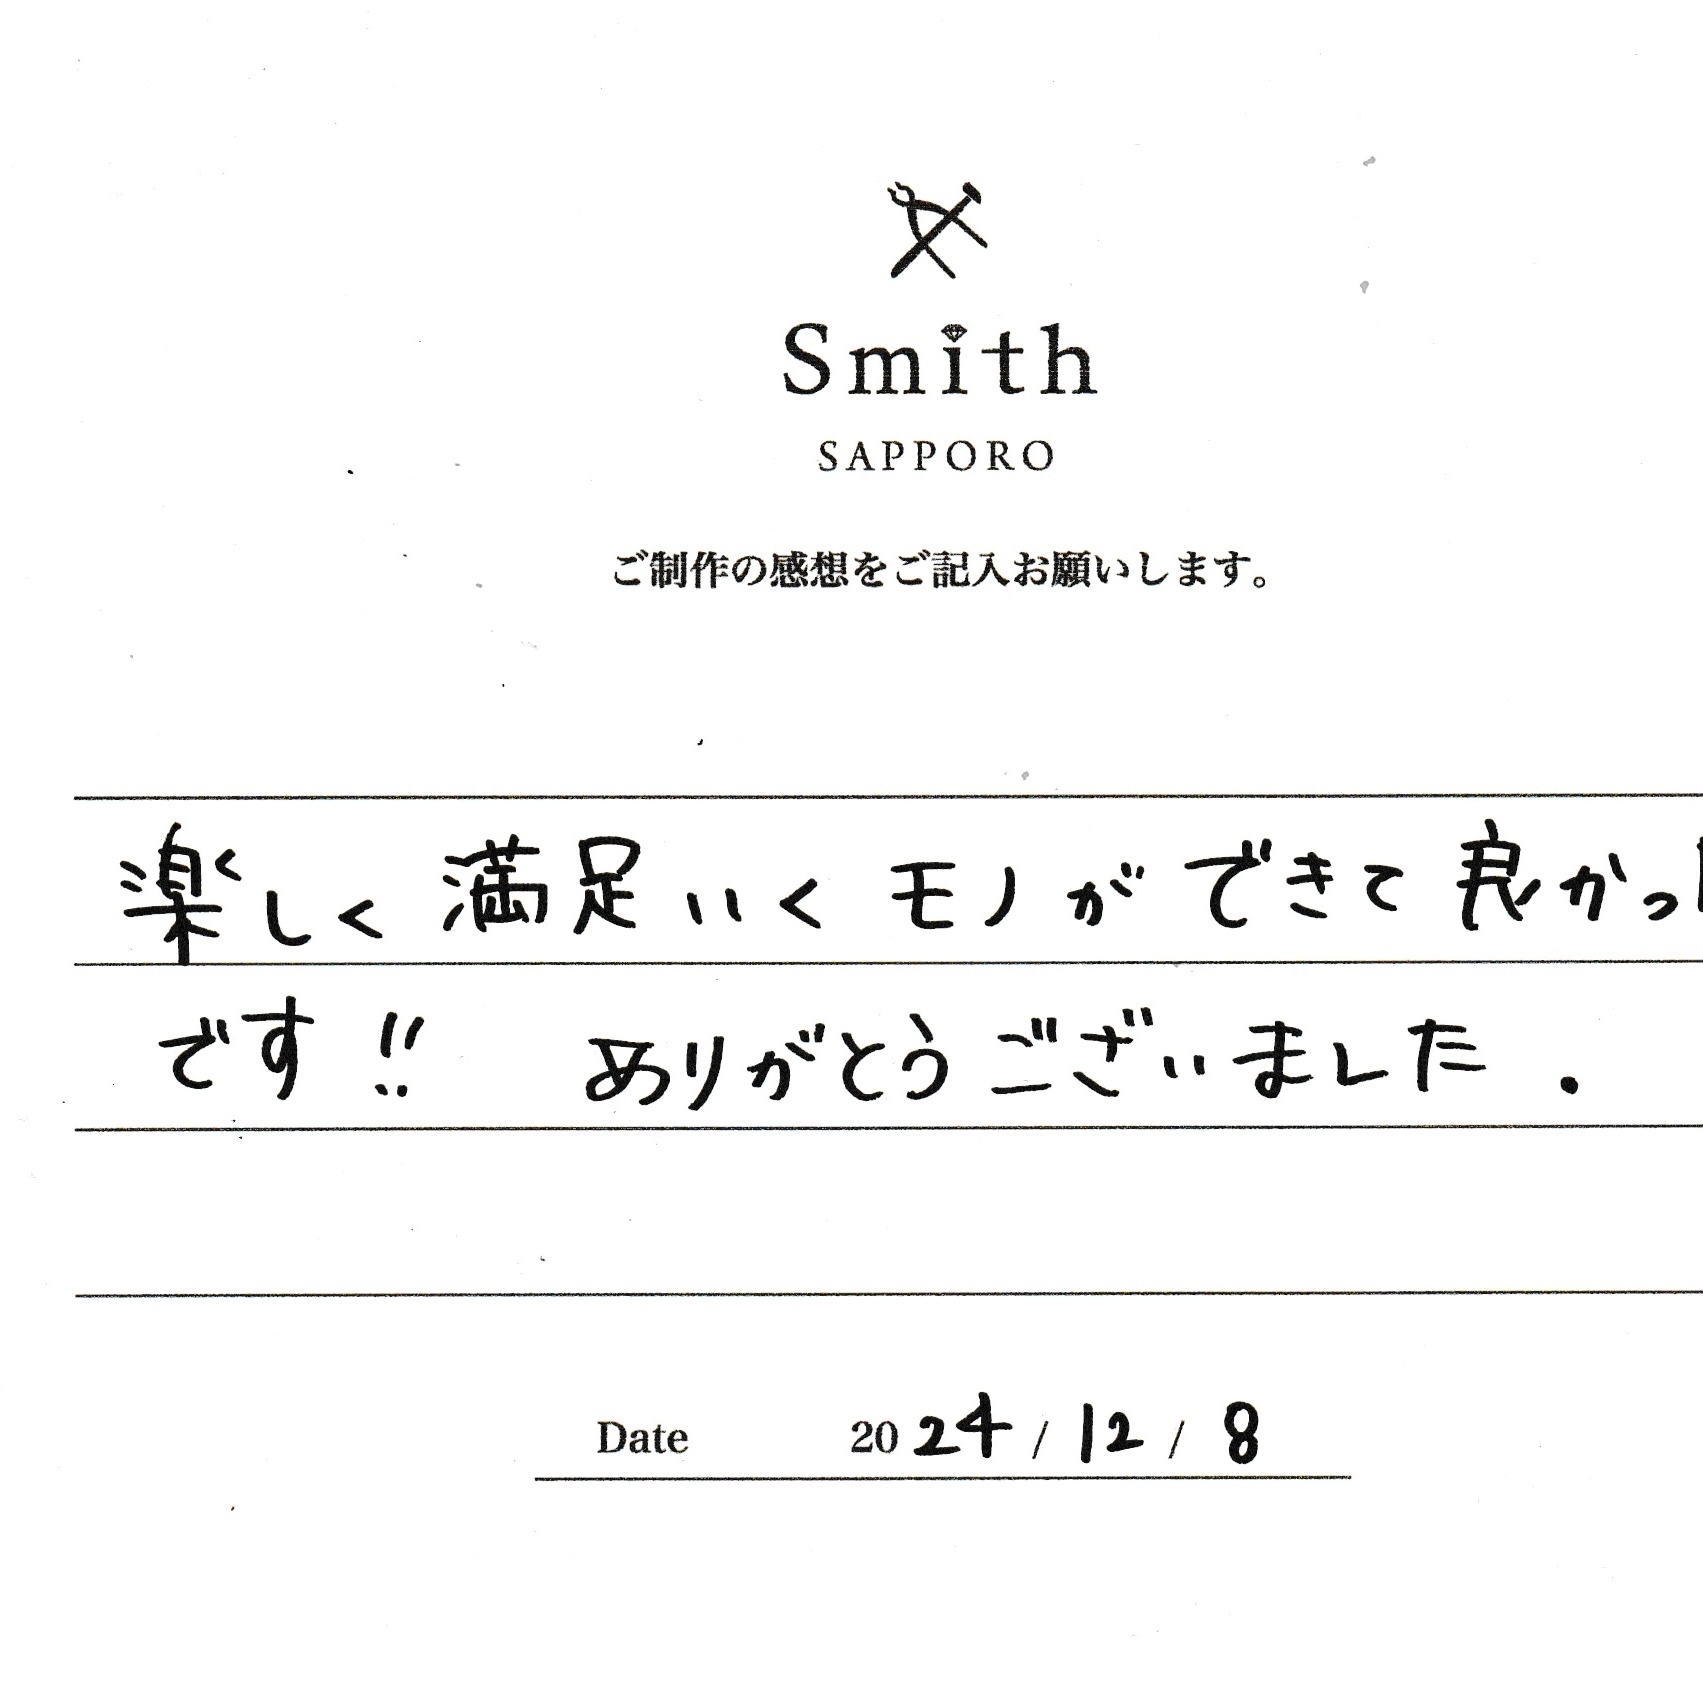 Smith
SAPPORO
ご制作の感想をご記入お願いします。
楽しく満足いくモノができて良かっ
です!! ありがとうございました.
Date 2024/12/8